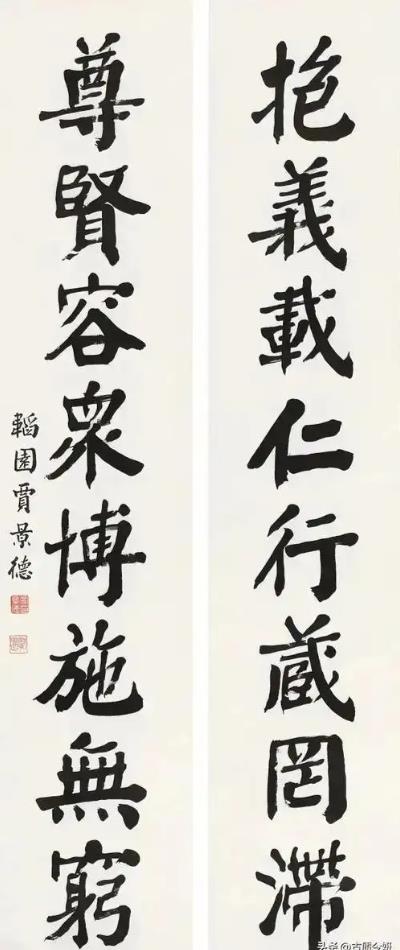 抱義載仁行藏罔滯
尊賢容衆博施無窮
韜園賈景德
头条@古朗今妍